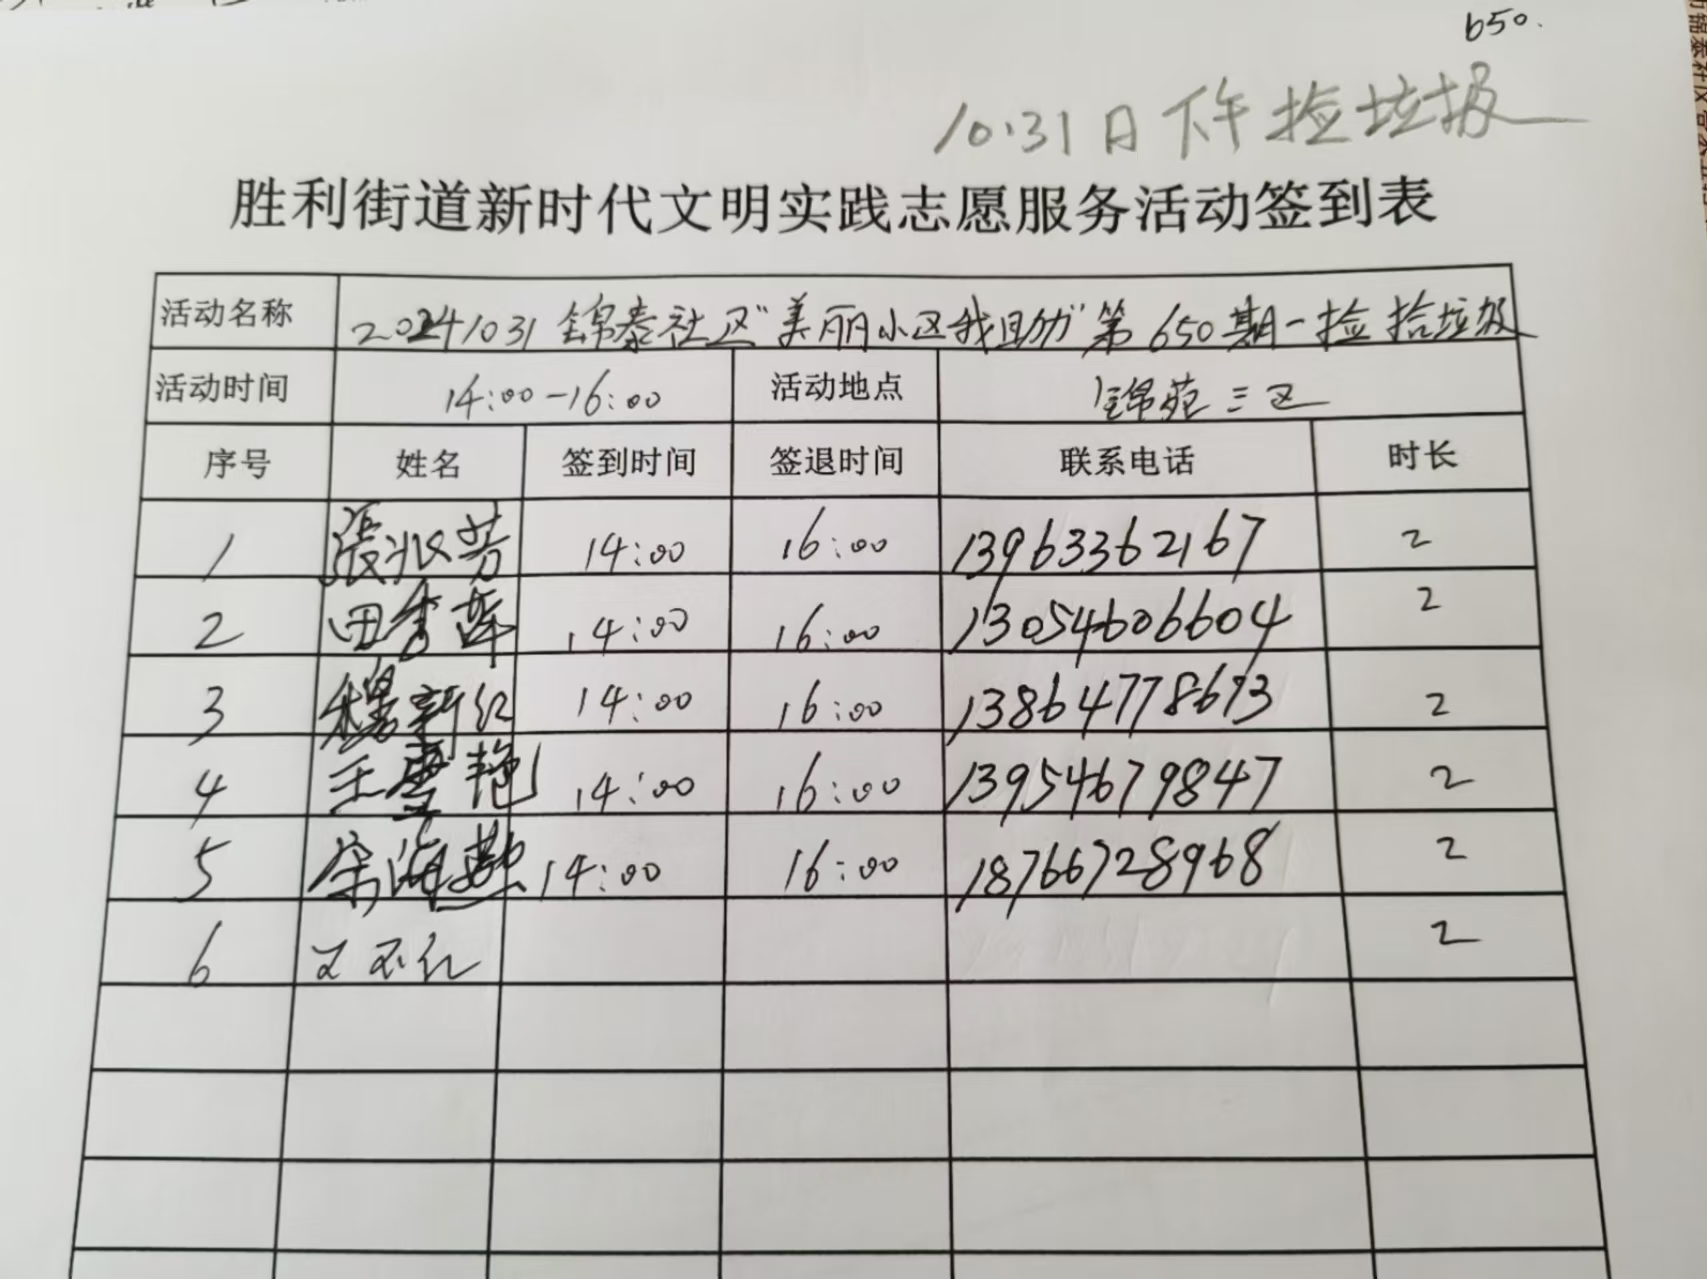 650.
10.31日下午捡垃圾
胜利街道新时代文明实践志愿服务活动签到表
活动名称 20241031锦泰社区"美丽小区我自助"第650期-捡拾垃圾
活动时间 14:00-16:00 活动地点 锦苑三区
序号 姓名 签到时间 签退时间 联系电话 时长
1 張兆芳 14:00 16:00 13963362167 2
2 田秀萍 14:00 16:00 13054606604 2
3 穆新红 14:00 16:00 13864778673 2
4 王雪艳 14:00 16:00 13954679847 2
5 宋海燕 14:00 16:00 18766728968 2
6 2